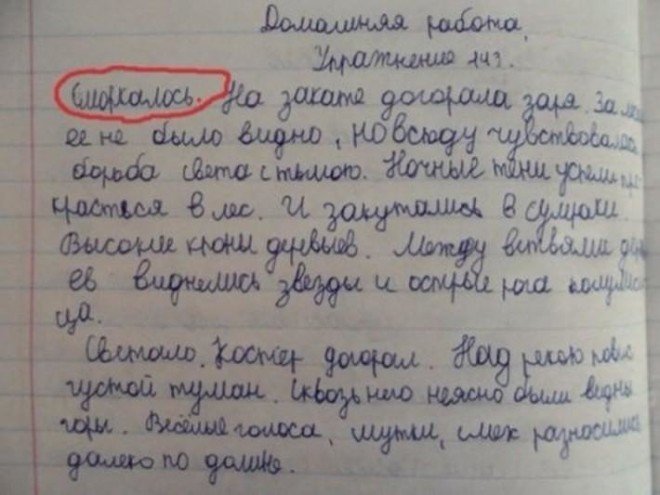 Домашняя работа
Упражнение 143.
Сморкалось. На закате догорала заря. За
ее не было видно, но всюду чувствовалась
борьба света с тьмою. Ночные тени успели про
красться в лес. И закутались в сумраки.
Высокие крони деревьев. Между ветвями дер
ев виднелись звезды и острые рога
ца.
Светало. Костер догорал. Над рекою повис
густой туман. Сквозь него неясно были видны
горы. Весёлые голоса, шутки, смех разносились
далеко по долине.